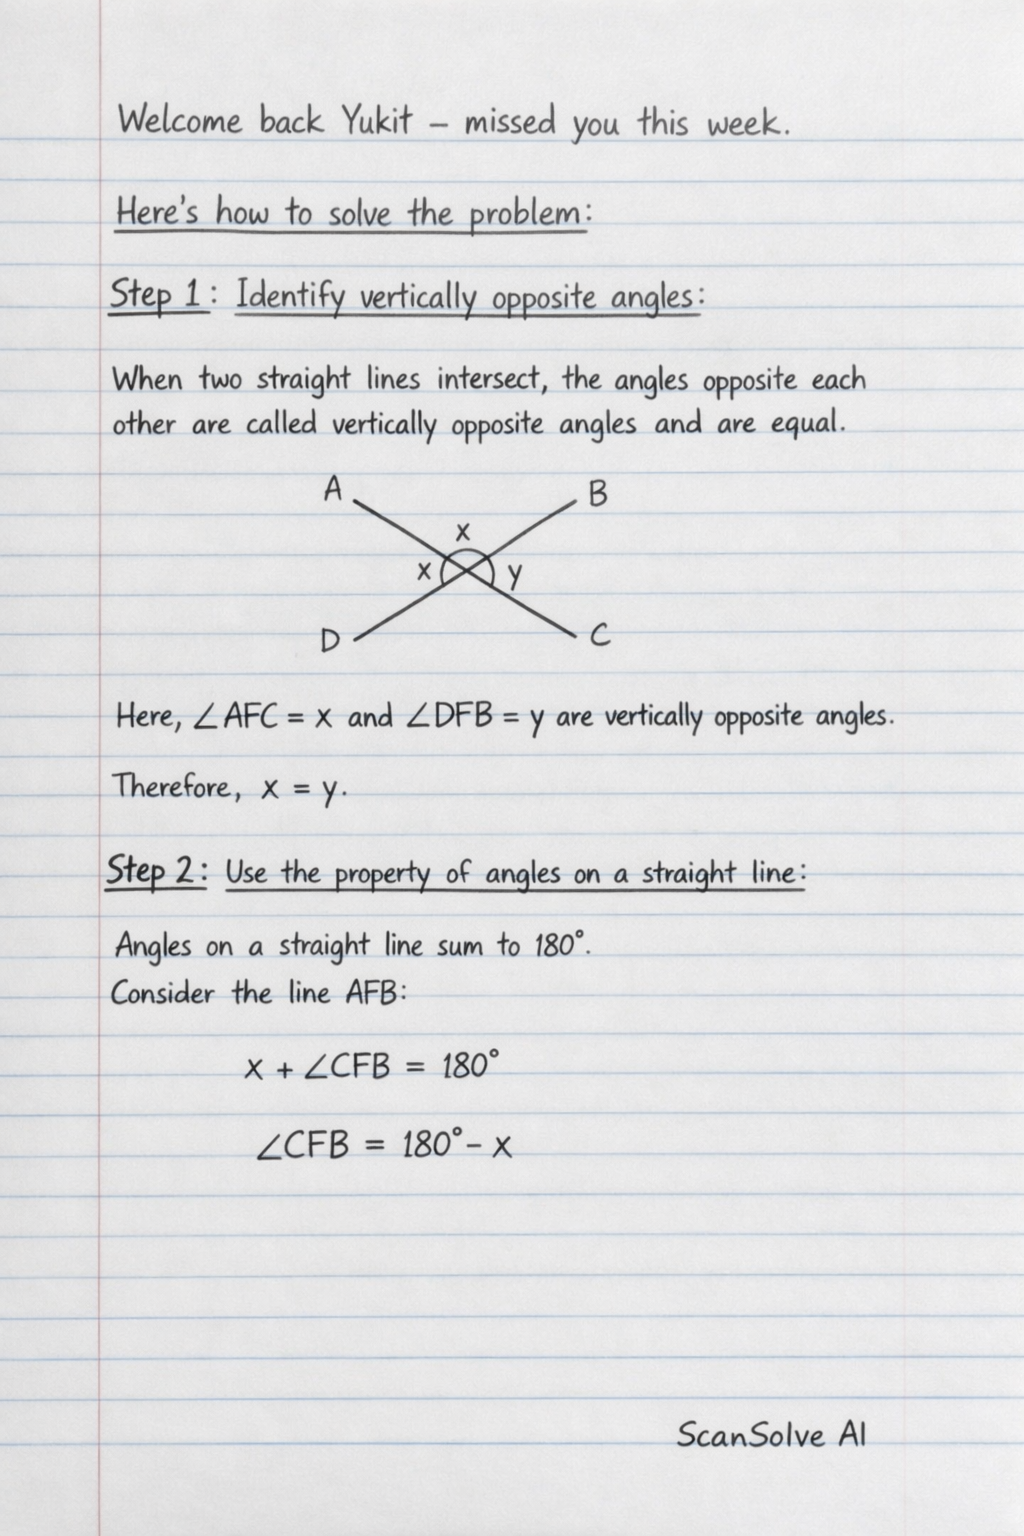 Welcome back Yukit – missed you this week.
Here's how to solve the problem:
Step 1: Identify vertically opposite angles:
When two straight lines intersect, the angles opposite each
other are called vertically opposite angles and are equal.
A B
x
x y
D C
Here, ∠AFC = x and ∠DFB = y are vertically opposite angles.
Therefore, x = y.
Step 2: Use the property of angles on a straight line:
Angles on a straight line sum to 180°.
Consider the line AFB:
x + ∠CFB = 180°
∠CFB = 180° – x
ScanSolve AI